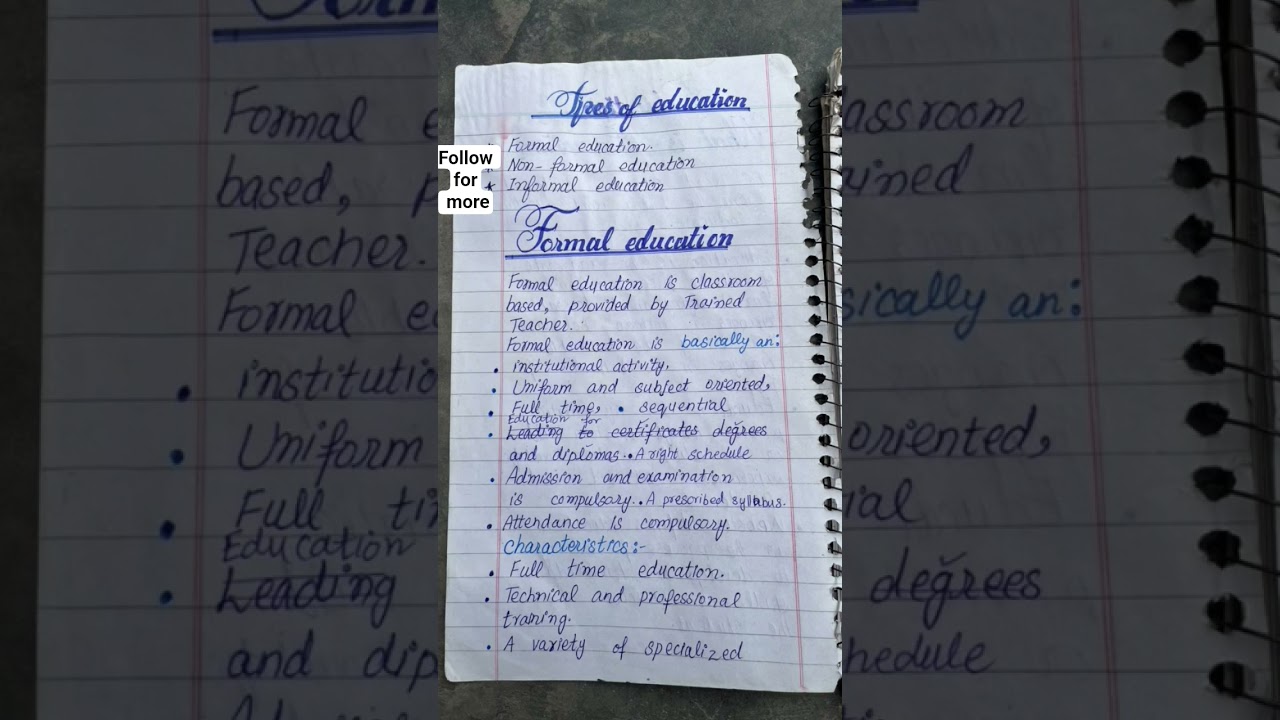 Types of education
Formal education.
* Non-formal education
* Informal education
Follow
for
more
Formal education
Formal education is classroom
based, provided by Trained
Teacher.
Formal education is basically an:
• institutional activity,
• Uniform and subject oriented,
• Full time, • sequential
Education for
• Leading to certificates degrees
and diplomas. • A right schedule
• Admission and examination
is compulsory. • A prescribed syllabus.
• Attendance is compulsory.
Characteristics:-
• Full time education.
• Technical and professional
training.
• A variety of specialized